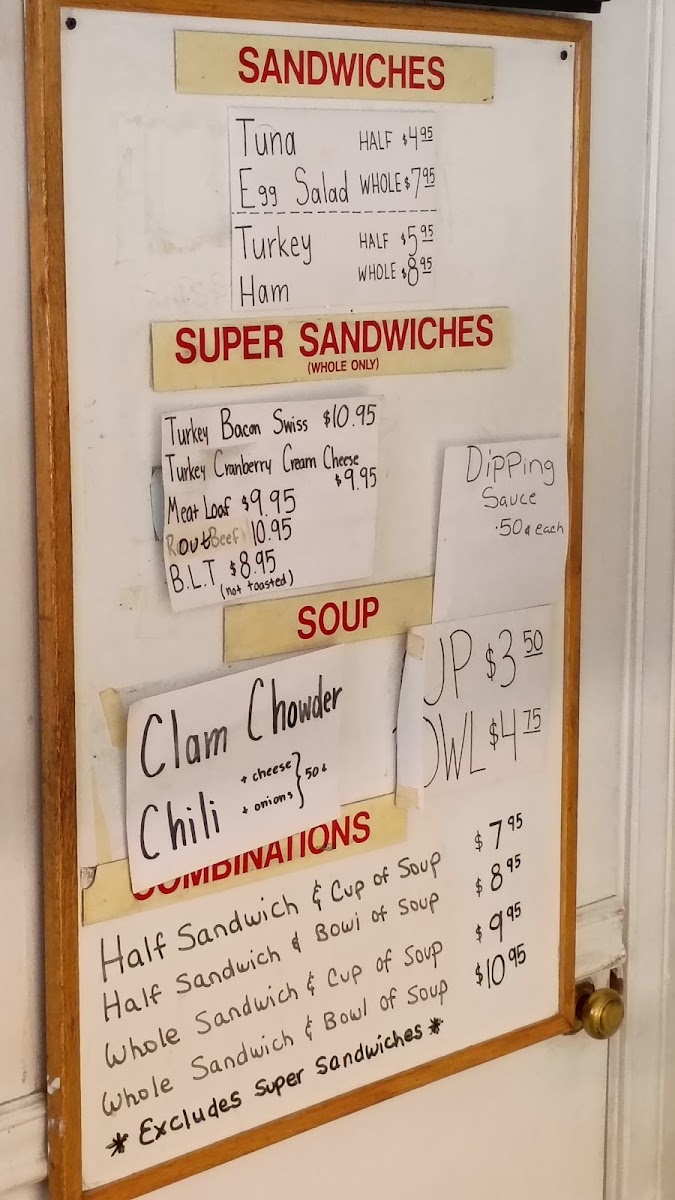 SANDWICHES
Tuna HALF $4.95
Egg Salad WHOLE $7.95
Turkey HALF $5.95
Ham WHOLE $8.95
SUPER SANDWICHES
(WHOLE ONLY)
Turkey Bacon Swiss $10.95
Turkey Cranberry Cream Cheese
$9.95
Meat Loaf $9.95
out Beef 10.95
B.L.T $8.95
(not toasted)
Dipping
Sauce
.50¢ each
SOUP
Clam Chowder
Chili + cheese + onions } 50¢
UP $3.50
OWL $4.75
COMBINATIONS
Half Sandwich & Cup of Soup $7.95
Half Sandwich & Bowl of Soup $8.95
Whole Sandwich & Cup of Soup $9.95
Whole Sandwich & Bowl of Soup $10.95
* Excludes Super Sandwiches *